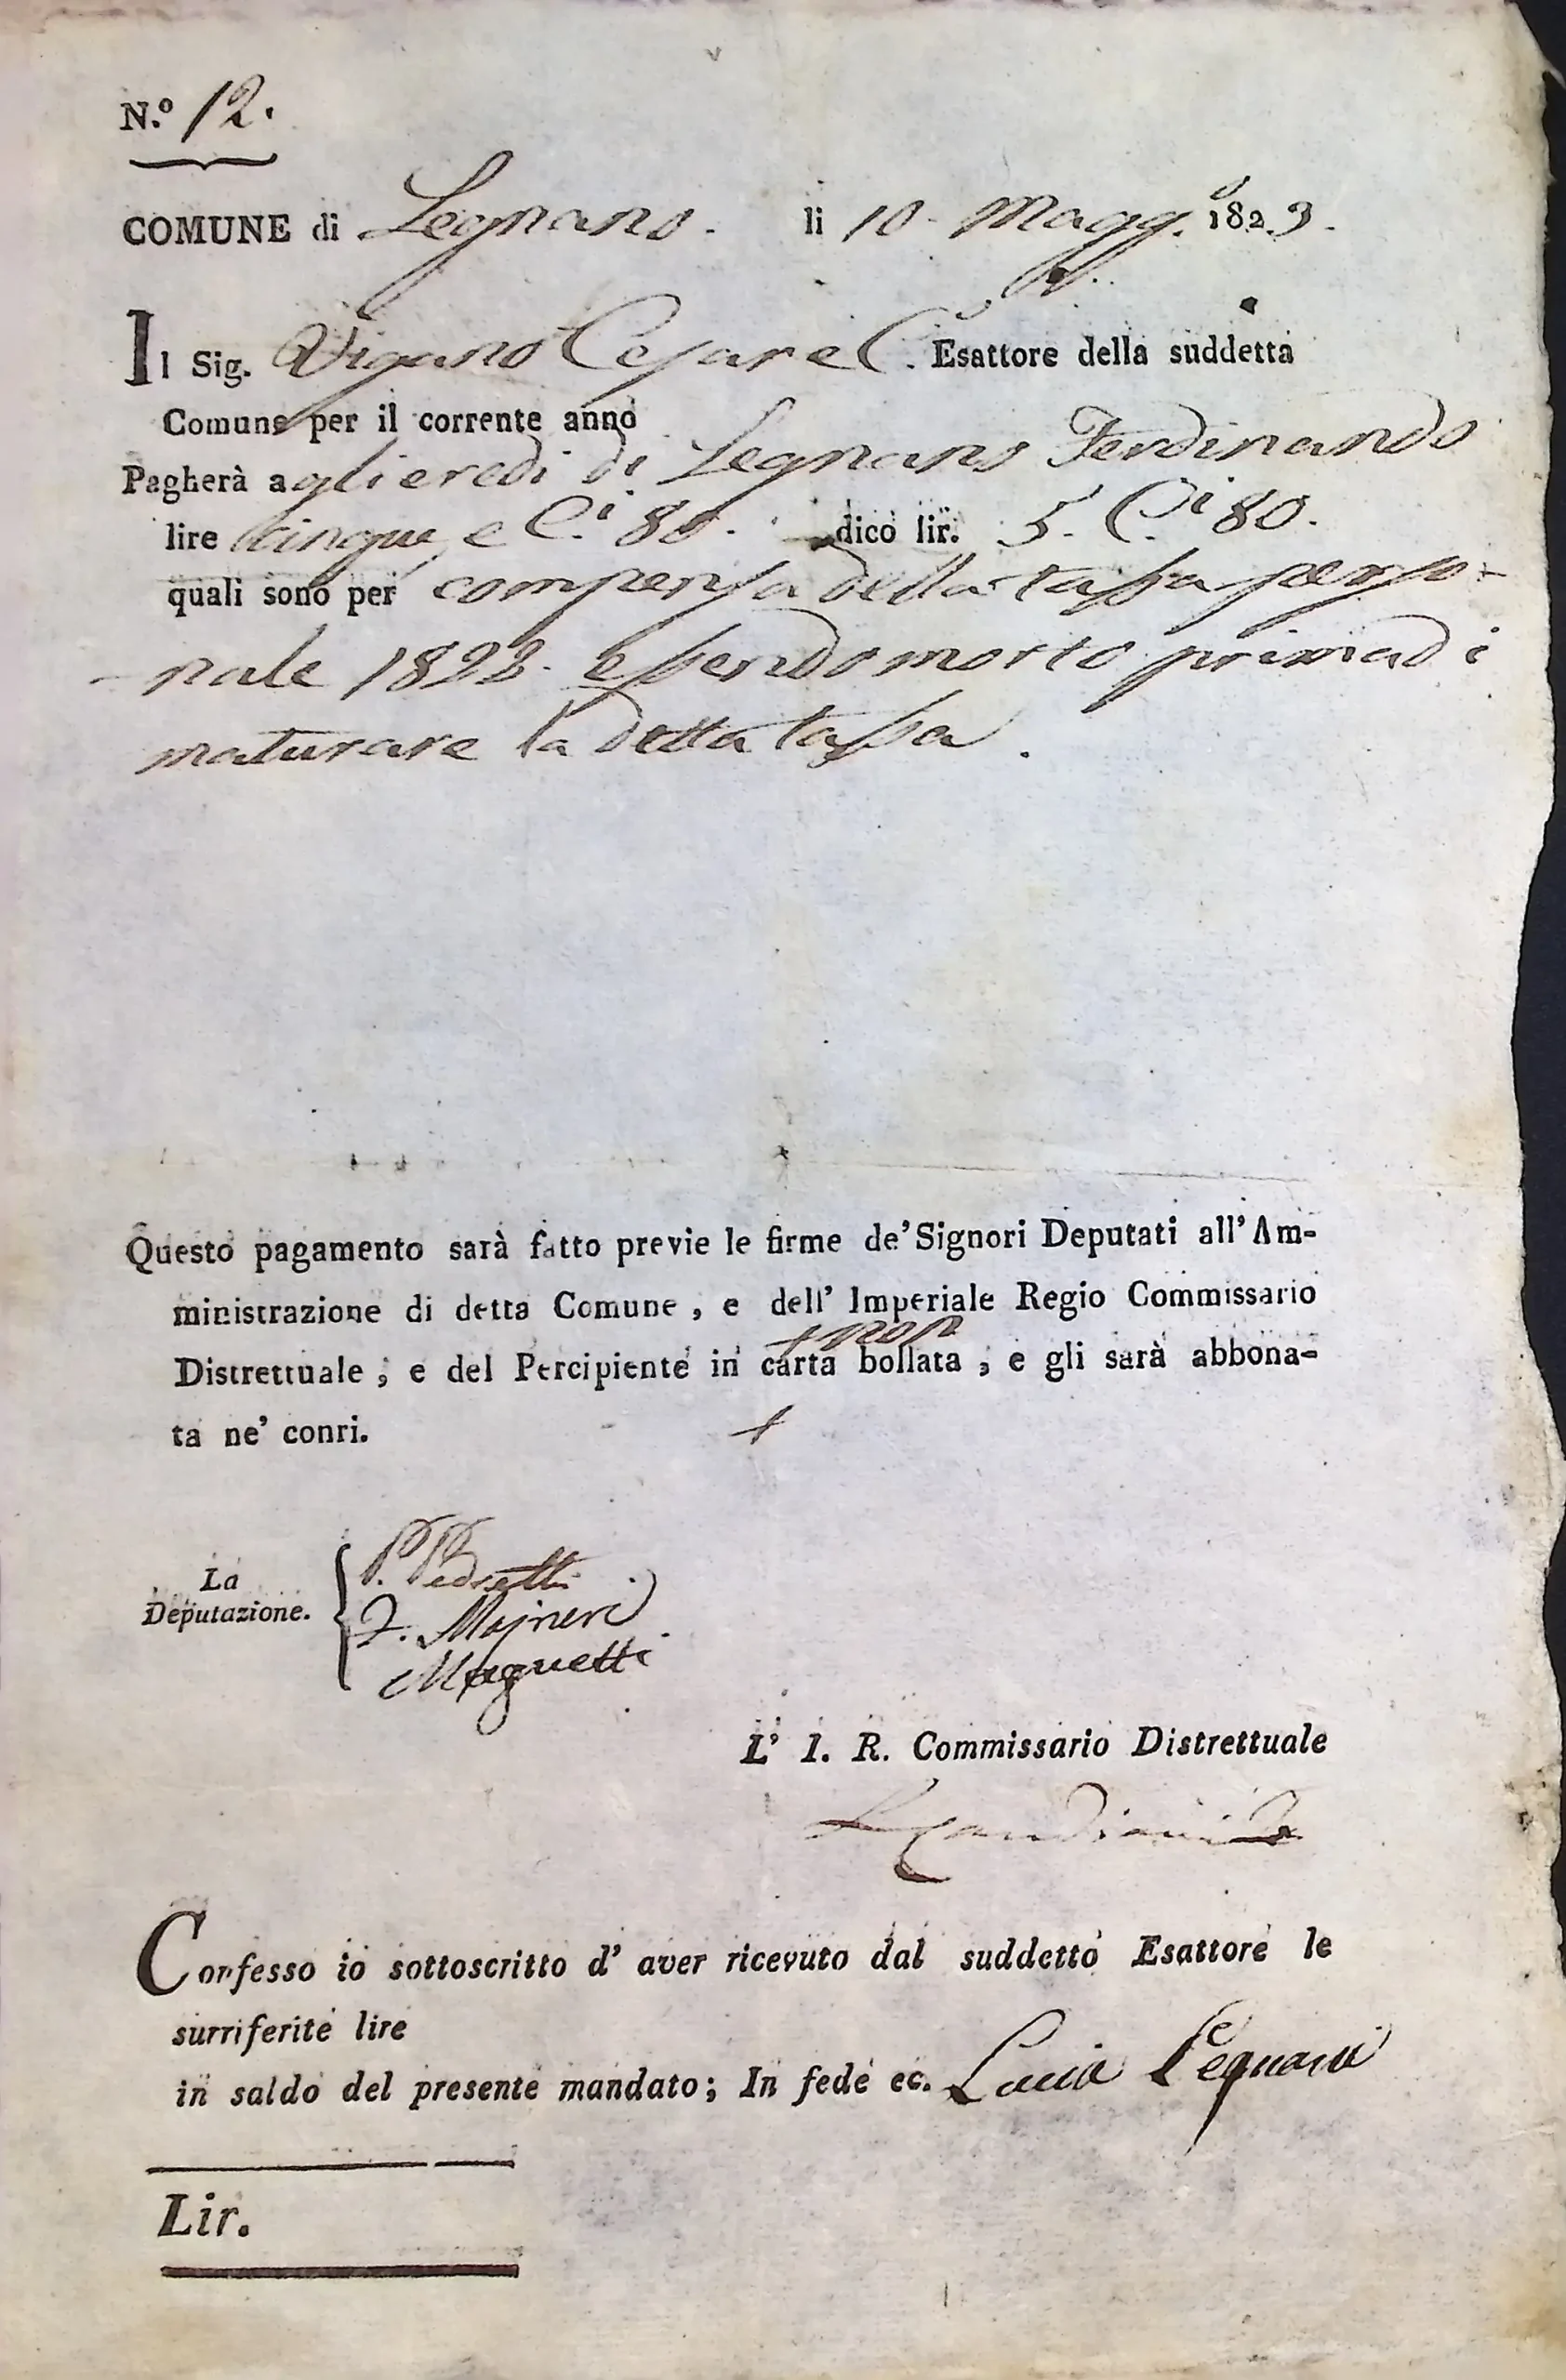 N.º 12.
COMUNE di Legnano. li 10. Magg.º 1823.
Il Sig. Viganò Cesare C. Esattore della suddetta
Comune per il corrente anno
Pagherà agli eredi di Legnano Ferdinando
lire cinque e C.i 80. dico lir. 5. C.i 80.
quali sono per compensa della tassa perso-
nale 1823. essendo morto prima di
maturare la detta tassa.
Questo pagamento sarà fatto previe le firme de' Signori Deputati all' Am-
ministrazione di detta Comune, e dell' Imperiale Regio Commissario
+ non
Distrettuale; e del Percipiente in carta bollata, e gli sarà abbona-
ta ne' conri. +
La
Deputazione.
P. Pedretti
F. Majneri
Magnetti
L' I. R. Commissario Distrettuale
Confesso io sottoscritto d' aver ricevuto dal suddetto Esattore le
surriferite lire
in saldo del presente mandato; In fede ec. Lucia Legnani
Lir.